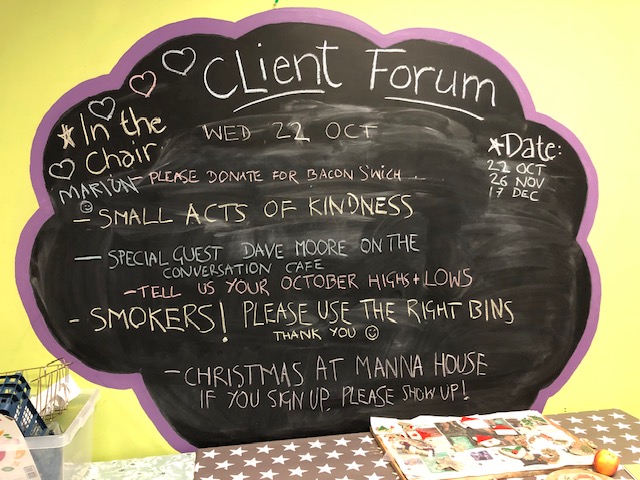 CLient Forum
* In the
Chair
MARION
WED 22 OCT
* Date:
22 OCT
26 NOV
17 DEC
- PLEASE DONATE FOR BACON S'WICH
- SMALL ACTS OF KINDNESS
- SPECIAL GUEST DAVE MOORE ON THE
CONVERSATION CAFE
- TELL US YOUR OCTOBER HIGHS + LOWS
- SMOKERS! PLEASE USE THE RIGHT BINS
THANK YOU ☺
- CHRISTMAS AT MANNA HOUSE
IF YOU SIGN UP, PLEASE SHOW UP!